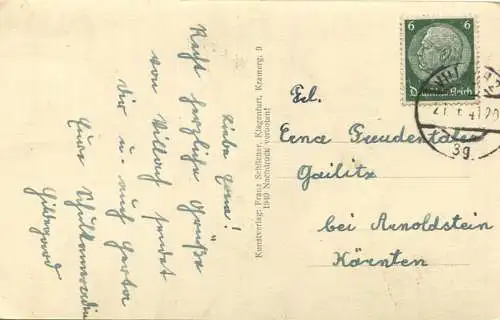 Liebe Erna!
Recht herzliche Grüße
von Villach sendet
dir u. auch Herta
Eure Schulkameradin
Hildegard
Kunstverlag: Franz Schilcher, Klagenfurt, Kramerg. 9
1940 Nachdruck verboten!
6 6
Deutsches Reich
3g
Frl.
Erna Freudenthaler
Gailitz
bei Arnoldstein
Kärnten